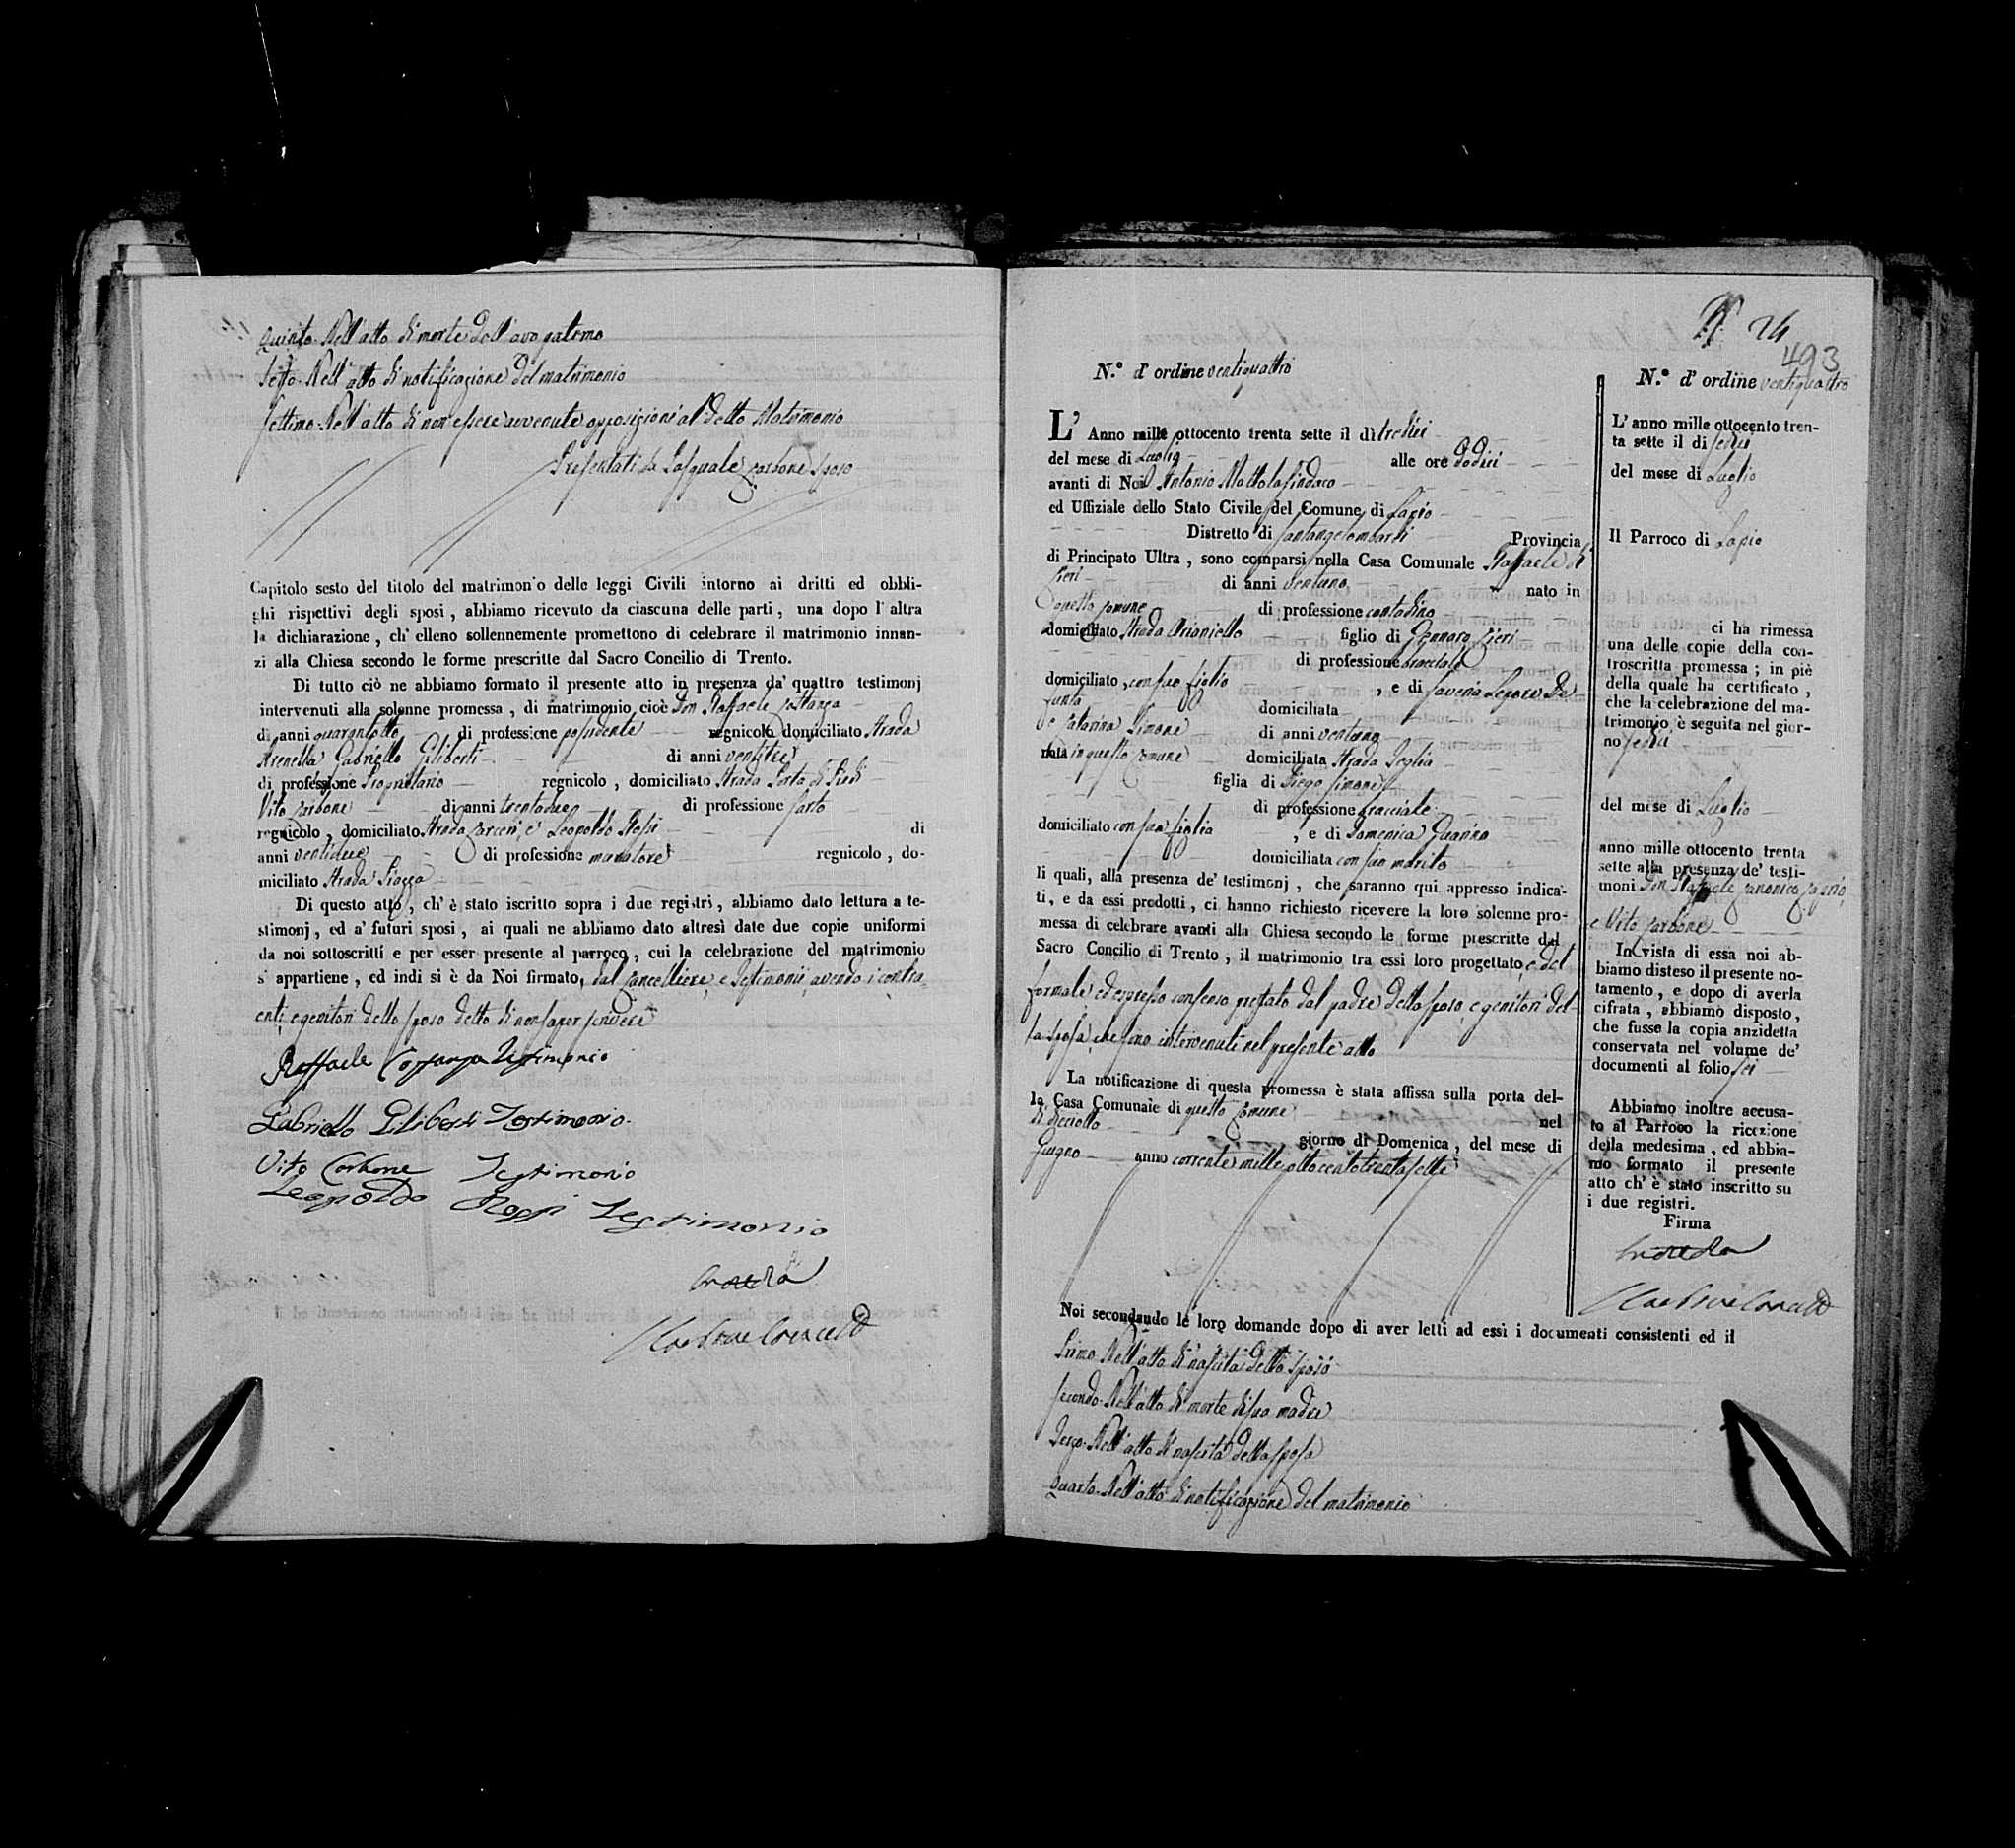 Quinto. Nell'atto di morte dell'avo paterno
Sesto. Nell'atto di notificazione del matrimonio
Settimo. Nell'atto di non essere avvenute opposizioni al detto Matrimonio
Presentati da Pasquale Carbone Sposo
Capitolo sesto del titolo del matrimonio delle leggi Civili intorno ai dritti ed obbli-
ghi rispettivi degli sposi, abbiamo ricevuto da ciascuna delle parti, una dopo l'altra
la dichiarazione, ch' elleno sollennemente promettono di celebrare il matrimonio innan-
zi alla Chiesa secondo le forme prescritte dal Sacro Concilio di Trento.
Di tutto ciò ne abbiamo formato il presente atto in presenza da' quattro testimonj
intervenuti alla solenne promessa, di matrimonio cioè Don Raffaele Costanza
di anni quarantotto di professione possidente regnicolo domiciliato Strada
Arenella Gabriello Giliberti di anni ventitre
di professione Proprietario regnicolo, domiciliato Strada Porta di Piedi
Vito Carbone di anni trentadue di professione sarto
regnicolo, domiciliato Strada Carceri, e Leopoldo Rossi di
anni ventidue di professione muratore regnicolo, do-
miciliato Strada Piazza
Di questo atto, ch' è stato iscritto sopra i due registri, abbiamo dato lettura a te-
stimonj, ed a' futuri sposi, ai quali ne abbiamo dato altresì date due copie uniformi
da noi sottoscritti e per esser presente al parroco, cui la celebrazione del matrimonio
s' appartiene, ed indi si è da Noi firmato, dal Cancelliere, e Testimonii avendo i contra-
enti, e genitori dello sposo detto di non saper scrivere
Raffaele Costanza Testimonio
Gabriello Giliberti Testimonio.
Vito Carbone Testimonio
Leopoldo Rossi Testimonio
24
493
N.° d' ordine ventiquattro
L' Anno mille ottocento trenta sette il dì tredici
del mese di Luglio alle ore dodici
avanti di Noi Antonio Mottola Sindaco
ed Uffiziale dello Stato Civile del Comune di Lapio
Distretto di Santangelombardi Provincia
di Principato Ultra, sono comparsi nella Casa Comunale Raffaele di
Pieri di anni ventuno nato in
questo Comune di professione contadino
domiciliato Strada Arianiello figlio di Gennaro Pieri
di professione bracciale
domiciliato, con suo figlio, e di Saveria Lepore De-
funta domiciliata
e Catarina Simone di anni ventuno
nata in questo Comune domiciliata Strada Teglia
figlia di Diego Simone
di professione bracciale
domiciliato con sua figlia, e di Domenica Guarino
domiciliata con suo marito
li quali, alla presenza de' testimonj, che saranno qui appresso indica-
ti, e da essi prodotti, ci hanno richiesto ricevere la loro solenne pro-
messa di celebrare avanti alla Chiesa secondo le forme prescritte dal
Sacro Concilio di Trento, il matrimonio tra essi loro progettato, e del
formale ed espresso consenso prestato dal padre dello sposo, e genitori del-
la sposa, che sono intervenuti nel presente atto
La notificazione di questa promessa è stata affissa sulla porta del-
la Casa Comunale di questo Comune nel
dì diciotto giorno di Domenica, del mese di
Giugno anno corrente mille ottocento trentasette
Noi secondando le loro domande dopo di aver letti ad essi i documenti consistenti ed il
Primo. Nell'atto di nascita dello sposo
Secondo. Nell'atto di morte di sua madre
Terzo. Nell'atto di nascita della sposa
Quarto. Nell'atto di notificazione del matrimonio
N.° d' ordine ventiquattro
L' anno mille ottocento tren-
ta sette il dì sedici
del mese di Luglio
Il Parroco di Lapio
ci ha rimessa
una delle copie della con-
troscritta promessa; in piè
della quale ha certificato,
che la celebrazione del ma-
trimonio è seguita nel gior-
no sedici
del mese di Luglio
anno mille ottocento trenta
sette alla presenza de' testi-
moni Don Raffaele Canonico
e Vito Carbone
In vista di essa noi ab-
biamo disteso il presente no-
tamento, e dopo di averla
cifrata, abbiamo disposto,
che fusse la copia anzidetta
conservata nel volume de'
documenti al folio sei
Abbiamo inoltre accusa-
to al Parroco la ricezione
della medesima, ed abbia-
mo formato il presente
atto ch' è stato inscritto su
i due registri.
Firma